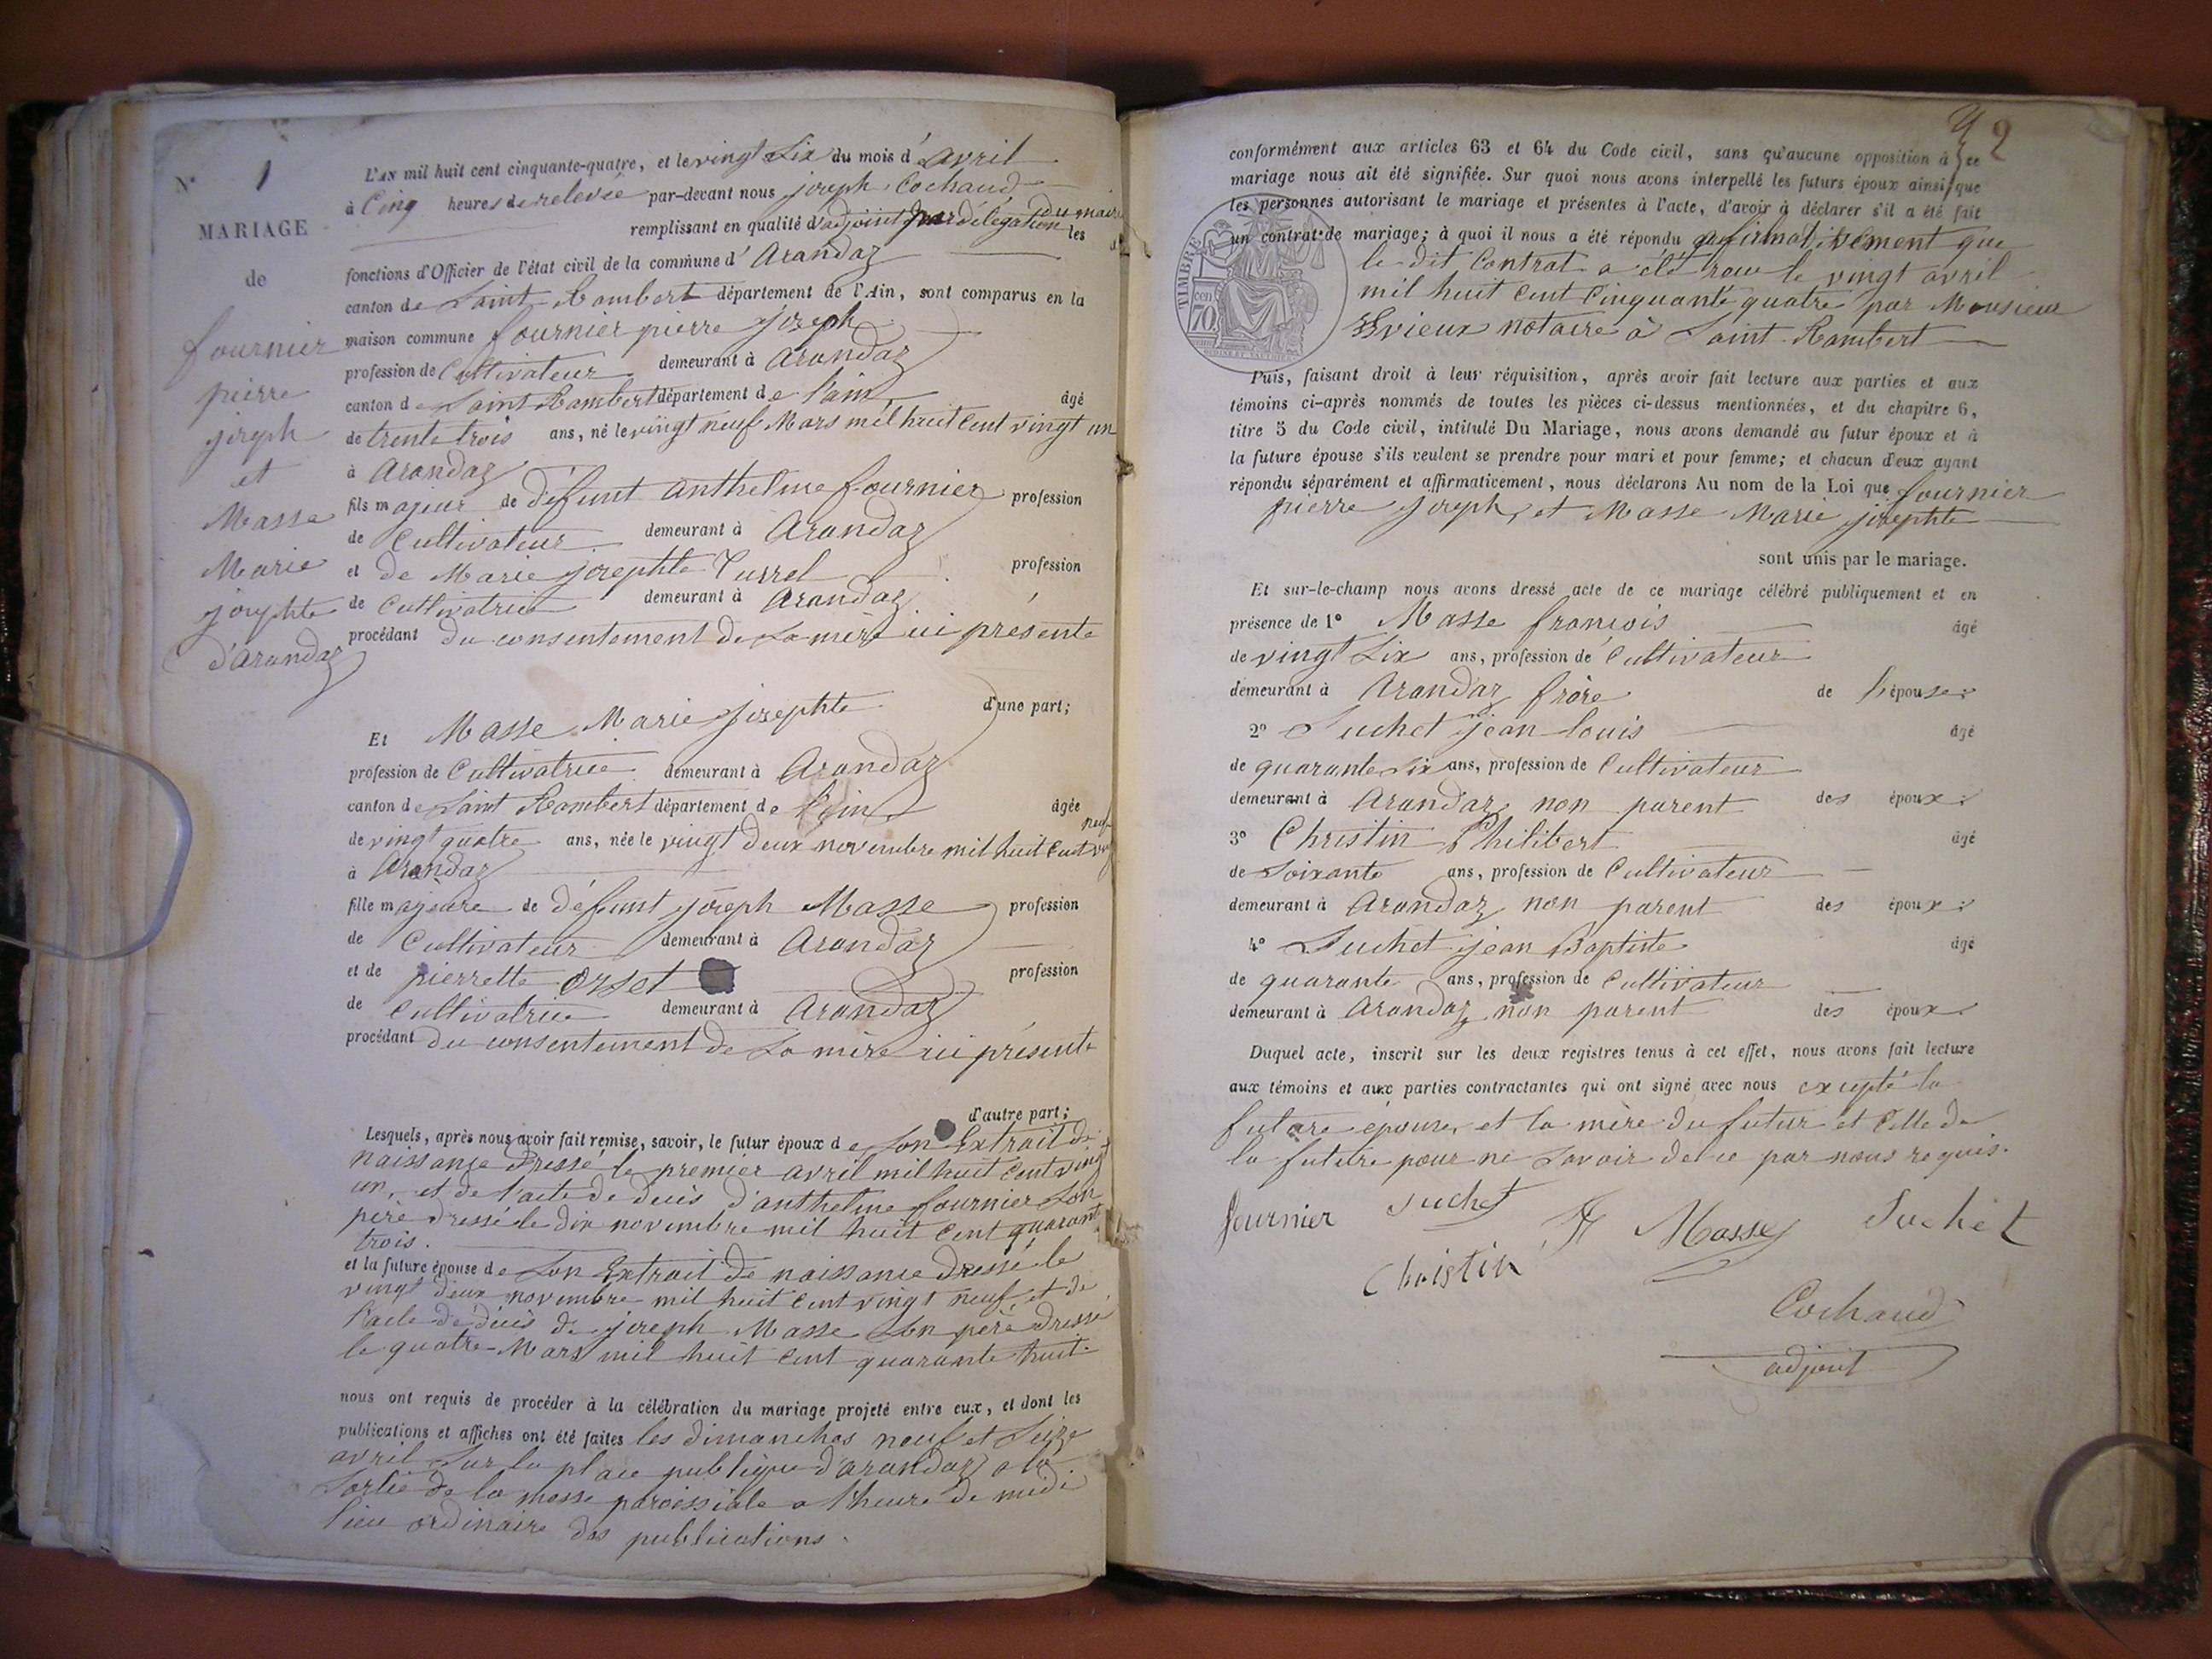 N° 1
MARIAGE
de
fournier
pierre
joseph
et
Masse
Marie
josephte
d'arandaz
L'AN mil huit cent cinquante-quatre, et le vingt six du mois d'avril
à Cinq heures de relevée par-devant nous joseph Cochaud
remplissant en qualité d'adjoint par délégation du maire les
fonctions d'Officier de l'état civil de la commune d'Arandaz
canton de Saint-Rambert département de l'Ain, sont comparus en la
maison commune fournier pierre joseph
profession de Cultivateur demeurant à Arandaz
canton de Saint Rambert département de l'ain âgé
de trente trois ans, né le vingt neuf Mars mil huit Cent vingt un
à Arandaz
fils majeur de défunt anthelme fournier profession
de Cultivateur demeurant à Arandaz
et de Marie josephte Turrel profession
de Cultivatrice demeurant à Arandaz
procédant du consentement de sa mère ici présente
d'une part;
Et Masse Marie josephte
profession de Cultivatrice demeurant à Arandaz
canton de Saint Rambert département de l'ain âgée
de vingt quatre ans, née le vingt deux novembre mil huit Cent vingt neuf
à Arandaz
fille majeure de défunt joseph Masse profession
de Cultivateur demeurant à Arandaz
et de pierrette orset profession
de Cultivatrice demeurant à Arandaz
procédant du consentement de sa mère ici présente
d'autre part;
Lesquels, après nous avoir fait remise, savoir, le futur époux de son Extrait de
naissance dressé le premier avril mil huit Cent vingt
un, et de l'acte de décès d'anthelme fournier son
père dressé le dix novembre mil huit Cent quarante
trois.
et la future épouse de son Extrait de naissance dressé le
vingt deux novembre mil huit Cent vingt neuf et de
l'acte de décès de joseph Masse son père dressé
le quatre Mars mil huit Cent quarante huit.
nous ont requis de procéder à la célébration du mariage projeté entre eux, et dont les
publications et affiches ont été faites les dimanches neuf et Seize
avril sur la place publique d'arandaz a la
sortie de la messe paroissiale a l'heure de midi
lieu ordinaire des publications.
2
conformément aux articles 63 et 64 du Code civil, sans qu'aucune opposition à ce
mariage nous ait été signifiée. Sur quoi nous avons interpellé les futurs époux ainsi que
les personnes autorisant le mariage et présentes à l'acte, d'avoir à déclarer s'il a été fait
un contrat de mariage; à quoi il nous a été répondu affirmativement que
le dit Contrat a été reçu le vingt avril
mil huit Cent Cinquante quatre par Monsieur
notaire à Saint-Rambert
TIMBRE
cen
70
Puis, faisant droit à leur réquisition, après avoir fait lecture aux parties et aux
témoins ci-après nommés de toutes les pièces ci-dessus mentionnées, et du chapitre 6,
titre 5 du Code civil, intitulé Du Mariage, nous avons demandé au futur époux et à
la future épouse s'ils veulent se prendre pour mari et pour femme; et chacun d'eux ayant
répondu séparément et affirmativement, nous déclarons Au nom de la Loi que fournier
pierre joseph, et Masse Marie josephte
sont unis par le mariage.
Et sur-le-champ nous avons dressé acte de ce mariage célébré publiquement et en
présence de 1° Masse francois âgé
de vingt six ans, profession de Cultivateur
demeurant à Arandaz frère de l'épouse
2° Suchet jean louis âgé
de quarante six ans, profession de Cultivateur
demeurant à Arandaz non parent des époux
3° Christin Philibert âgé
de soixante ans, profession de Cultivateur
demeurant à Arandaz non parent des époux
4° Suchet jean Baptiste âgé
de quarante ans, profession de Cultivateur
demeurant à Arandaz non parent des époux
Duquel acte, inscrit sur les deux registres tenus à cet effet, nous avons fait lecture
aux témoins et aux parties contractantes qui ont signé avec nous excepté la
future épouse, et la mère du futur et Celle de
la future pour ne savoir de ce par nous requis.
fournier suchet F Masse Suchet
Christin
Cochaud
adjoint